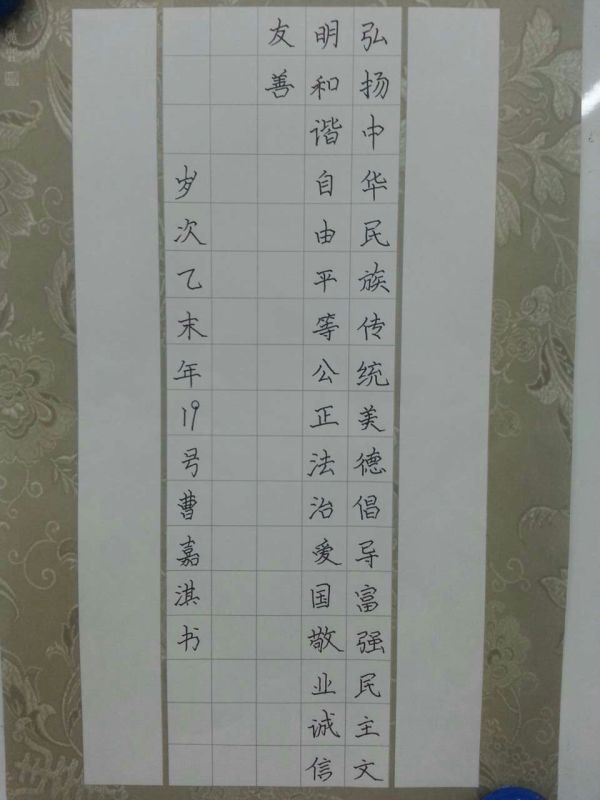 弘扬中华民族传统美德倡导富强民主文
明和谐自由平等公正法治爱国敬业诚信
友善
岁次乙末年19号曹嘉淇书